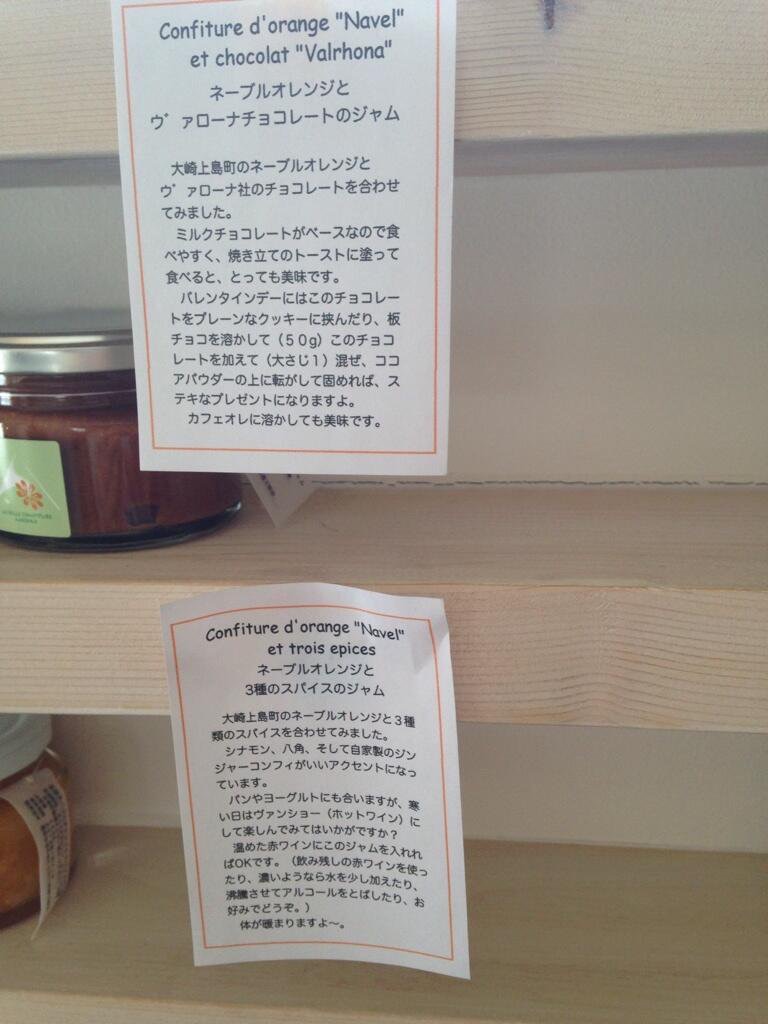 Confiture d'orange "Navel"
et chocolat "Valrhona"
ネーブルオレンジと
ヴァローナチョコレートのジャム
大崎上島町のネーブルオレンジと
ヴァローナ社のチョコレートを合わせ
てみました。
ミルクチョコレートがベースなので食
べやすく、焼き立てのトーストに塗って
食べると、とっても美味です。
バレンタインデーにはこのチョコレー
トをプレーンなクッキーに挟んだり、板
チョコを溶かして（５０g）このチョコ
レートを加えて（大さじ１）混ぜ、ココ
アパウダーの上に転がして固めれば、ス
テキなプレゼントになりますよ。
カフェオレに溶かしても美味です。
Confiture d'orange "Navel"
et trois epices
ネーブルオレンジと
3種のスパイスのジャム
大崎上島町のネーブルオレンジと３種
類のスパイスを合わせてみました。
シナモン、八角、そして自家製のジン
ジャーコンフィがいいアクセントになっ
ています。
パンやヨーグルトにも合いますが、寒
い日はヴァンショー（ホットワイン）に
して楽しんでみてはいかがですか？
温めた赤ワインにこのジャムを入れれ
ばOKです。（飲み残しの赤ワインを使っ
たり、濃いようなら水を少し加えたり、
沸騰させてアルコールをとばしたり、お
好みでどうぞ。）
体が暖まりますよ～。